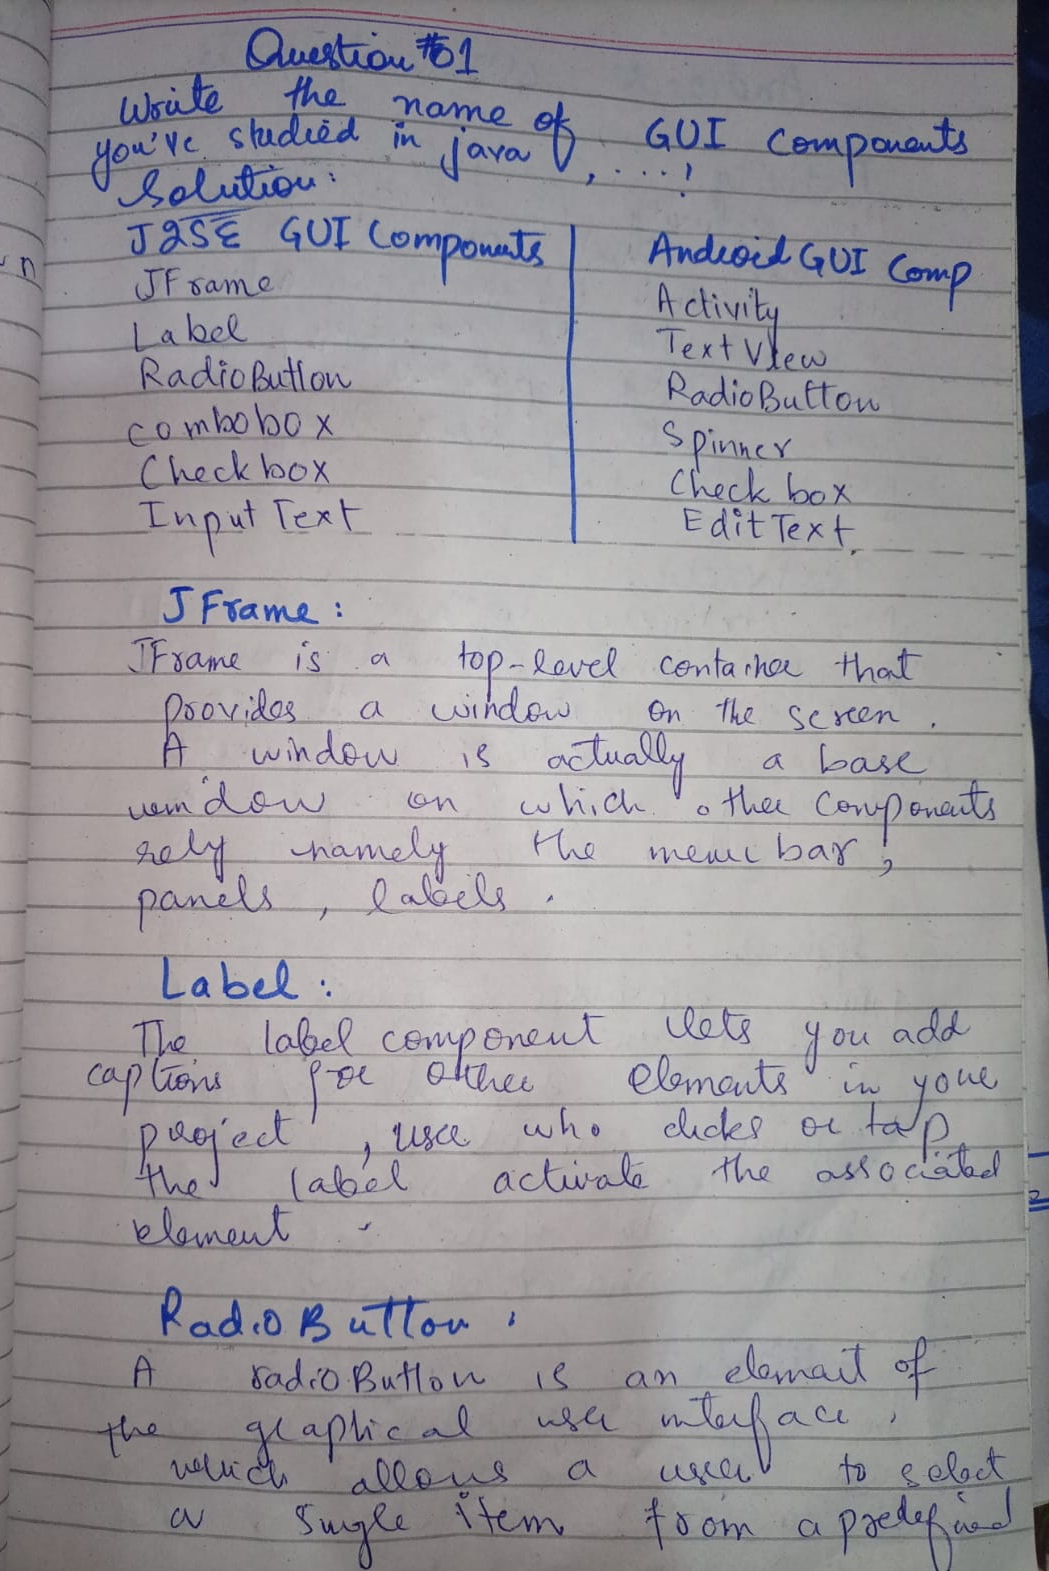 Question #01
Write the name of GUI Components
you've studied in java, ....!
Solution:
J2SE GUI Components
JFrame
Label
RadioButton
combobox
Checkbox
Input Text
Android GUI Comp
Activity
TextView
RadioButton
Spinner
Check box
EditText
JFrame:
JFrame is a top-level container that
provides a window on the screen.
A window is actually a base
window on which other components
rely namely the menu bar,
panels, labels.
Label:
The label component lets you add
captions for other elements in your
project, user who clicks or tap
the label activate the associated
element.
RadioButton:
A radioButton is an element of
the graphical user interface,
which allows a user to select
a single item from a predefined